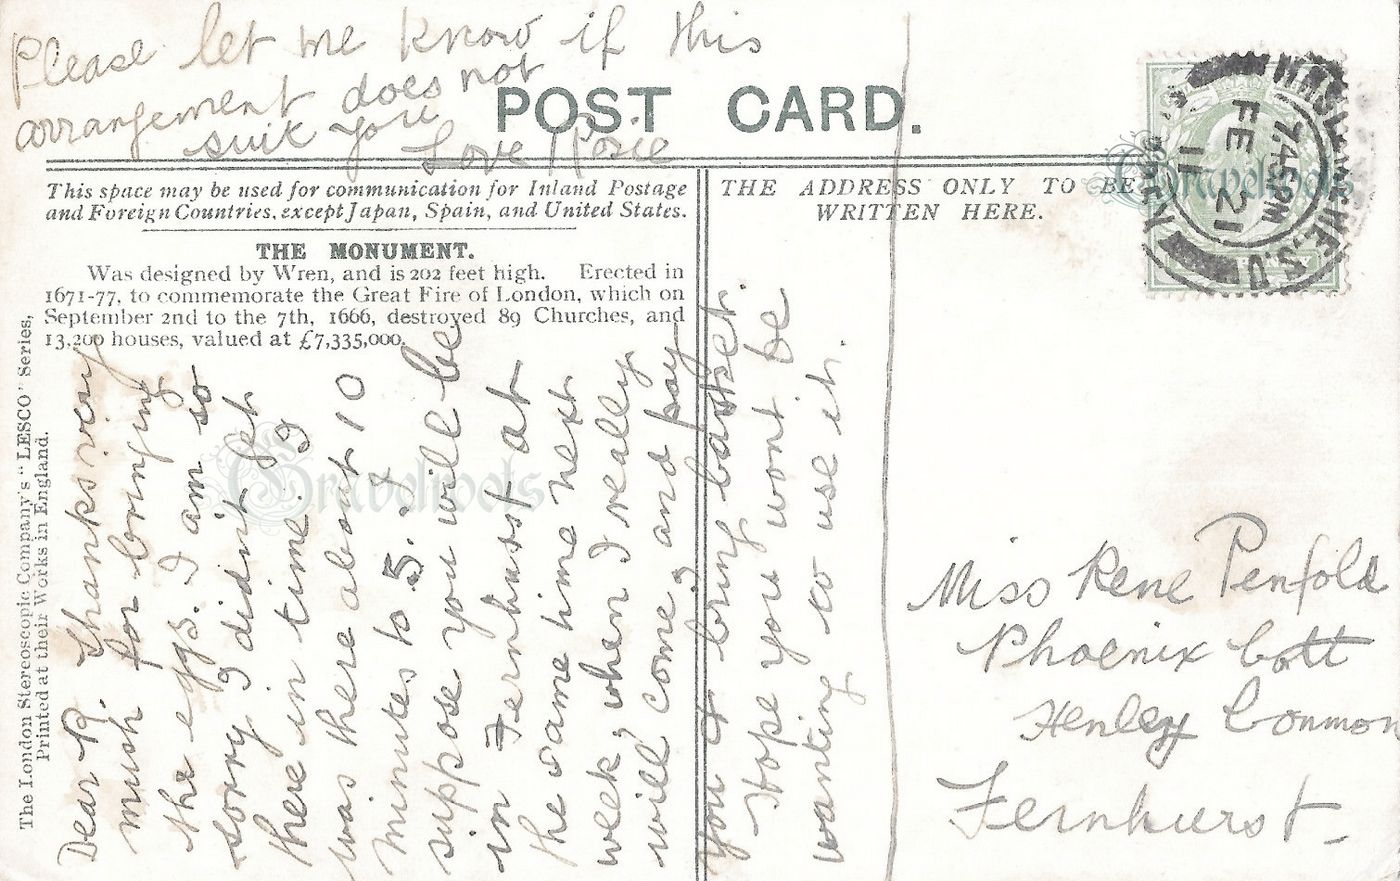 Please let me know if this
arrangement does not
suit you
Love Rosie
POST CARD.
This space may be used for communication for Inland Postage
and Foreign Countries, except Japan, Spain, and United States.
THE MONUMENT.
Was designed by Wren, and is 202 feet high. Erected in
1671-77, to commemorate the Great Fire of London, which on
September 2nd to the 7th, 1666, destroyed 89 Churches, and
13,200 houses, valued at £7,335,000.
The London Stereoscopic Company's "LESCO" Series,
Printed at their Works in England.
Dear R. Thanks very
mush for bringing
the eggs. I am so
sorry I didnt get
there in time. I
was there about 10
minutes to 5. I
suppose you will be
in Fernhurst at
the same time next
week, when I really
will come, and pay
you & bring basket.
Hope you wont be
wanting to use it.
THE ADDRESS ONLY TO BE
WRITTEN HERE.
7 45 PM
FE 21
11
Gravelroots
Gravelroots
Miss Rene Penfold
Phoenix Cott
Henley Common
Fernhurst